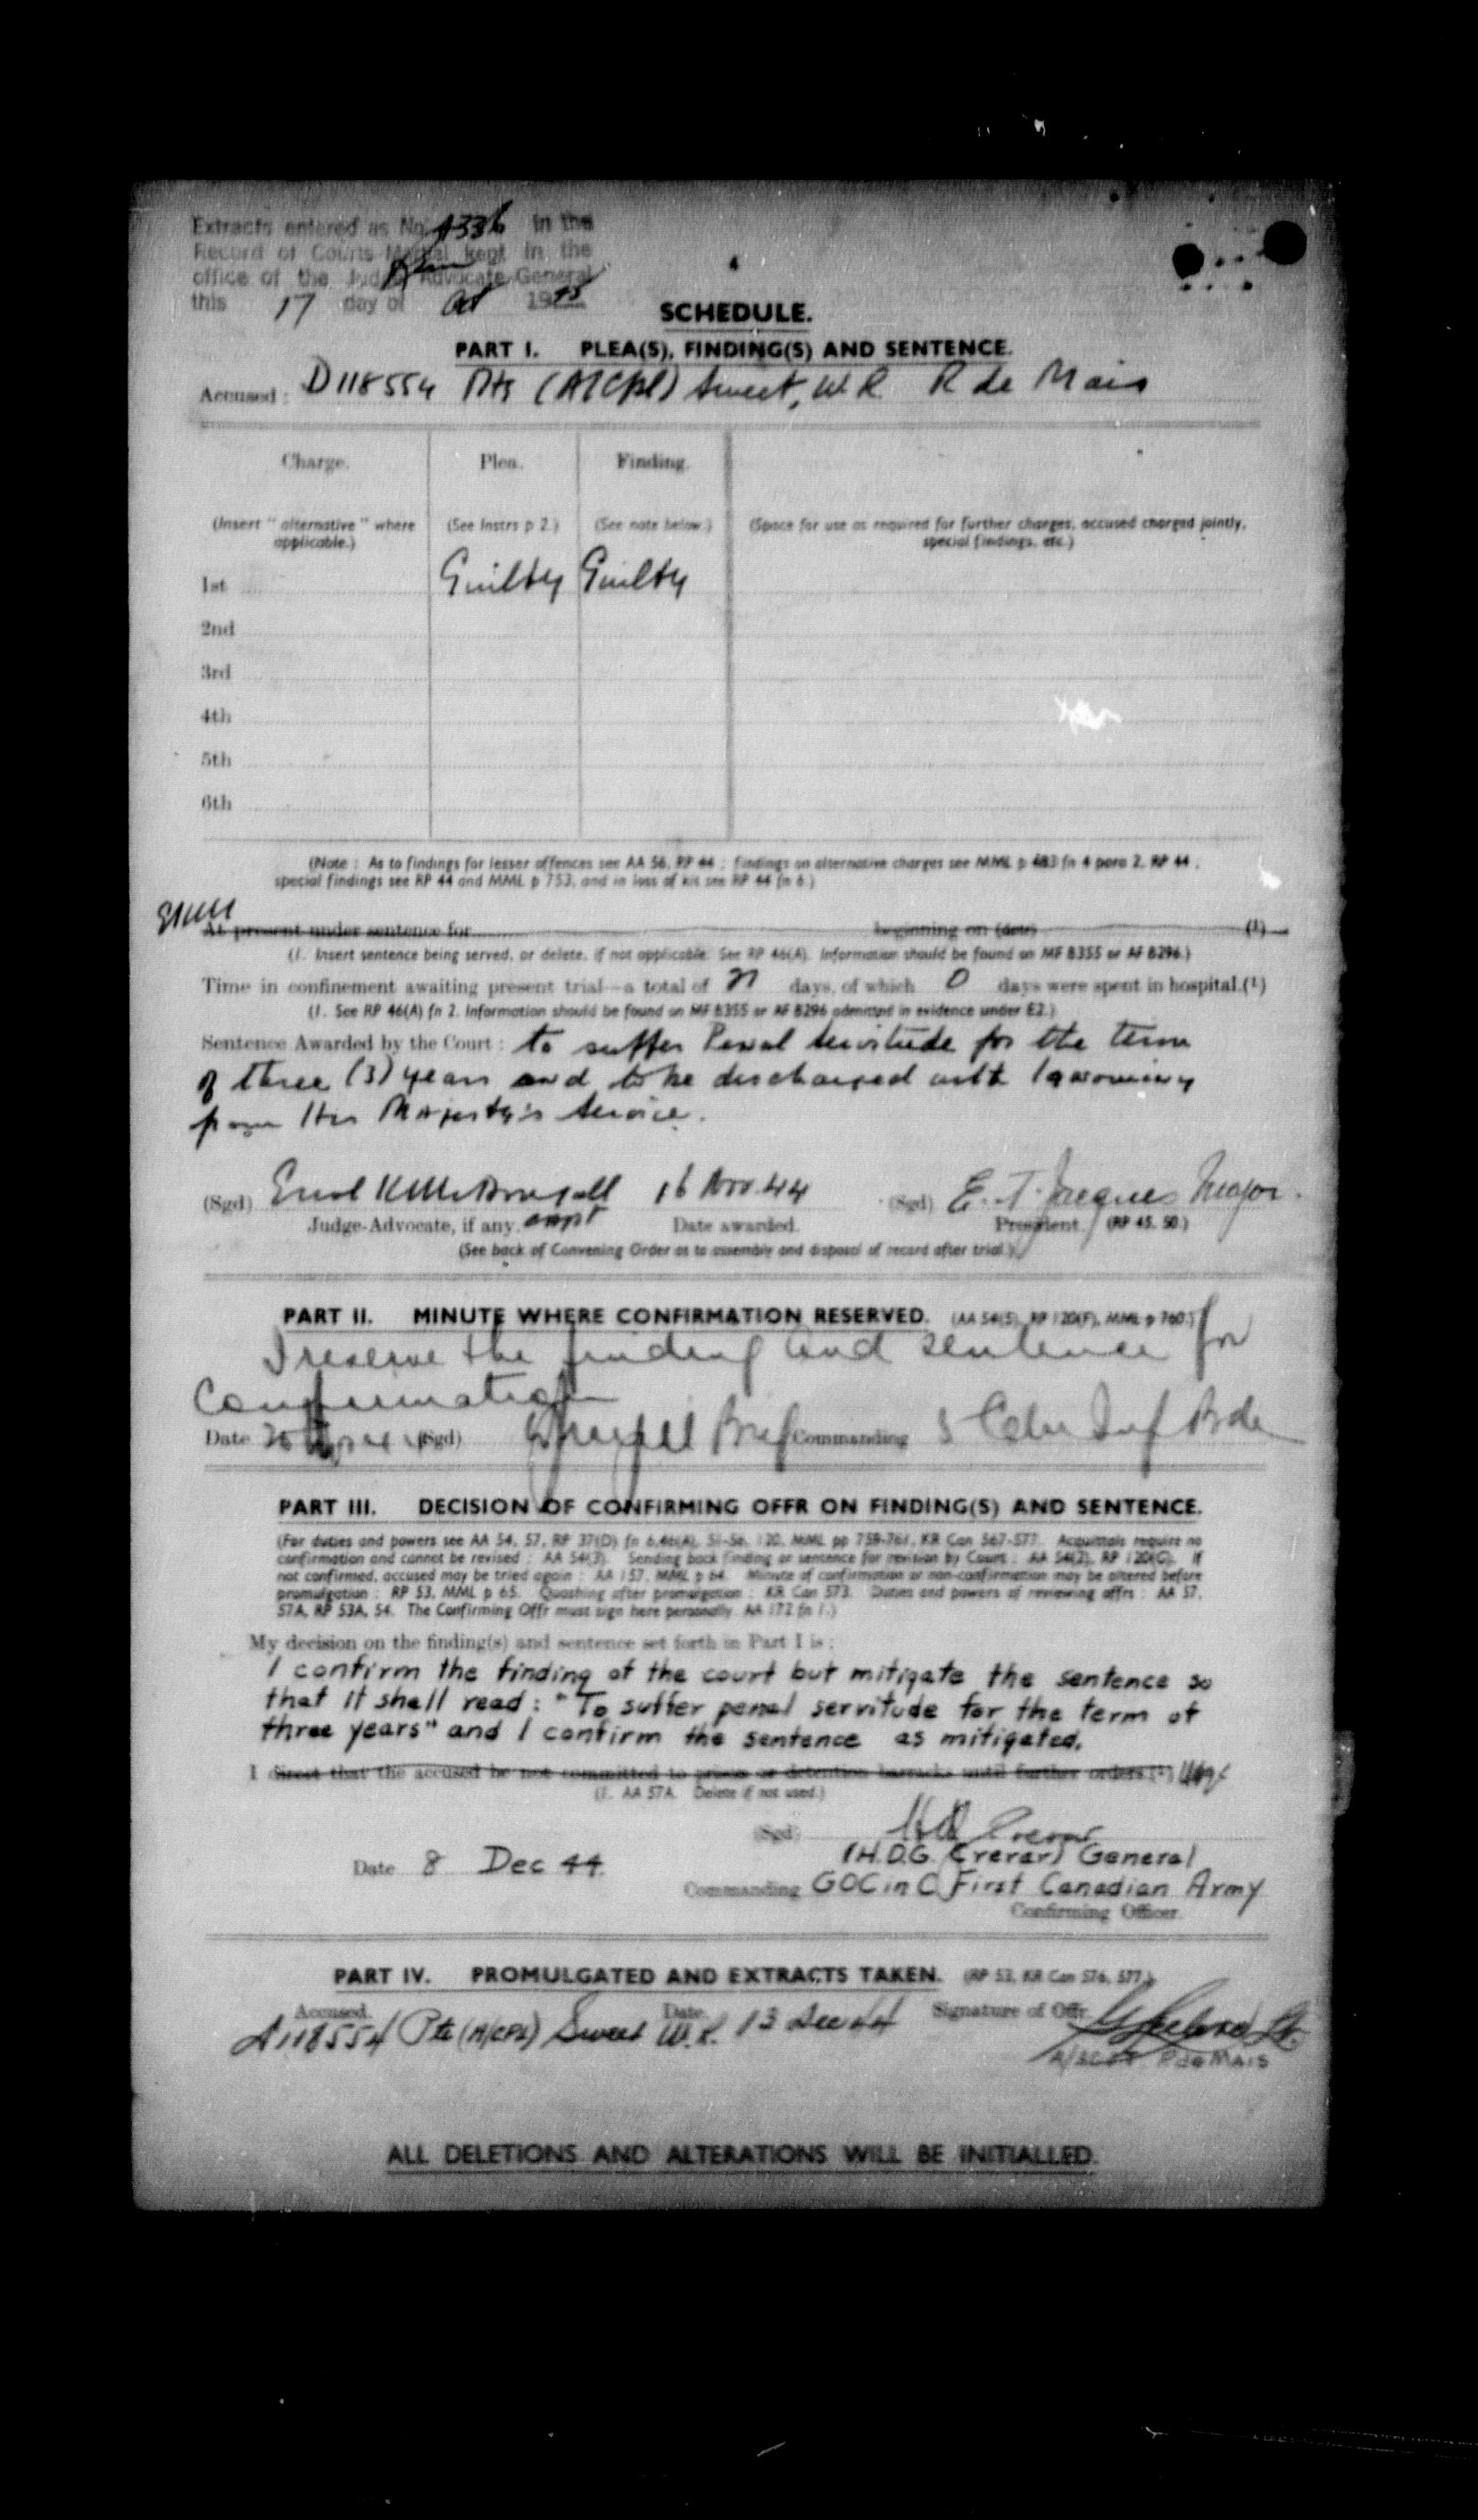 Extracts entered as No A336 in the
Record of Courts-Martial kept in the
office of the Judge Advocate-General
this 17 day of Oct 1945
4
SCHEDULE.
PART I. PLEA(S), FINDING(S) AND SENTENCE.
Accused: D118554 Pte (A/Cpl) Sweet, W.R. R de Mais
Charge. Plea. Finding.
(Insert "alternative" where applicable.) (See Instrs p 2.) (See note below.) (Space for use as required for further charges, accused charged jointly, special findings, etc.)
1st Guilty Guilty
2nd
3rd
4th
5th
6th
(Note: As to findings for lesser offences see AA 56, RP 44; findings on alternative charges see MML p 683 fn 4 para 2, RP 44;
special findings see RP 44 and MML p 753, and in loss of kit see RP 44 fn 6.)
At present under sentence for beginning on (date) (1)
(1. Insert sentence being served, or delete, if not applicable. See RP 46(A). Information should be found on MF B355 or AF B296.)
Time in confinement awaiting present trial—a total of 21 days, of which 0 days were spent in hospital.(1)
(1. See RP 46(A) fn 2. Information should be found on MF B355 or AF B296 admitted in evidence under E2.)
Sentence Awarded by the Court: to suffer Penal Servitude for the term
of three (3) years and to be discharged with Ignominy
from His Majesty's Service.
(Sgd) 16 Nov. 44 (Sgd) E. T. Jacques Major.
Judge-Advocate, if any. Date awarded. President. (RP 45, 50.)
(See back of Convening Order as to assembly and disposal of record after trial.)
PART II. MINUTE WHERE CONFIRMATION RESERVED. (AA 54(5), RP 120(F), MML p 760.)
I reserve the finding and sentence for
Confirmation
Date (Sgd) Brig Commanding 5 Cdn Inf Bde
PART III. DECISION OF CONFIRMING OFFR ON FINDING(S) AND SENTENCE.
(For duties and powers see AA 54, 57, RP 37(D) fn 6, 46(A), 51-56, 120, MML pp 759-761, KR Can 567-577. Acquittals require no
confirmation and cannot be revised: AA 54(3). Sending back finding or sentence for revision by Court: AA 54(2), RP 120(G). If
not confirmed, accused may be tried again: AA 157, MML p 64. Minute of confirmation or non-confirmation may be altered before
promulgation: RP 53, MML p 65. Quashing after promulgation: KR Can 573. Duties and powers of reviewing offrs: AA 57,
57A, RP 53A, 54. The Confirming Offr must sign here personally. AA 172 fn 1.)
My decision on the finding(s) and sentence set forth in Part I is:
I confirm the finding of the court but mitigate the sentence so
that it shall read: "To suffer penal servitude for the term of
three years" and I confirm the sentence as mitigated.
I direct that the accused be not committed to prison or detention barracks until further orders.(1)
(1. AA 57A. Delete if not used.)
(Sgd)
(H.D.G. Crerar) General
Date 8 Dec 44.
Commanding GOC in C First Canadian Army
Confirming Officer.
PART IV. PROMULGATED AND EXTRACTS TAKEN. (RP 53, KR Can 576, 577.)
Accused. Date. Signature of Offr.
D118554 Pte (A/CPL) Sweet W.R. 13 Dec 44
R de MAIS
ALL DELETIONS AND ALTERATIONS WILL BE INITIALLED.